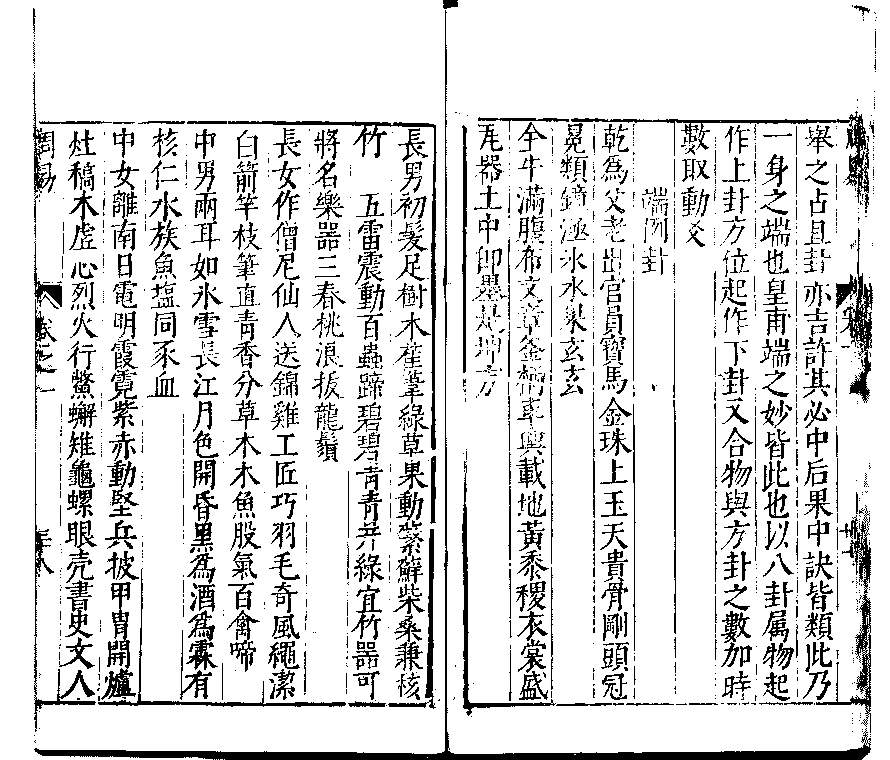 舉之占且卦亦吉許其必中后果中訣皆類此乃
一身之端也皇甫端之妙皆此也以八卦属物起
作上卦方位起作下卦又合物與方卦之數加時
數取動爻
端例卦
乾爲父老出官員寶馬金珠上玉天貴骨剛頭冠
冕類鏡𣸪氷水果玄玄
全牛滿腹布文章釜柄車輿載地黃黍稷衣裳盛
瓦器土中卽墨是坤方
長男初髮足樹木萑葦綠草果動紫蘚柴桑兼核
竹 五雷震動百蟲蹄碧碧青青并綠宜竹器可
將名樂器三春桃浪拔龍鬚
長女作僧尼仙人送錦雞工匠巧羽毛奇風繩潔
白箭竿枝筆直青香分草木木魚股氣百禽啼
中男兩耳如氷雪長江月色開昏黑爲酒爲霖有
核仁水族魚塩同豕血
中女離南日電明霞霓紫赤動堅兵披甲冑開爐
灶稿木虛心烈火行鱉蠏雉龜螺眼壳書史文人
周易 卷之一 三十八